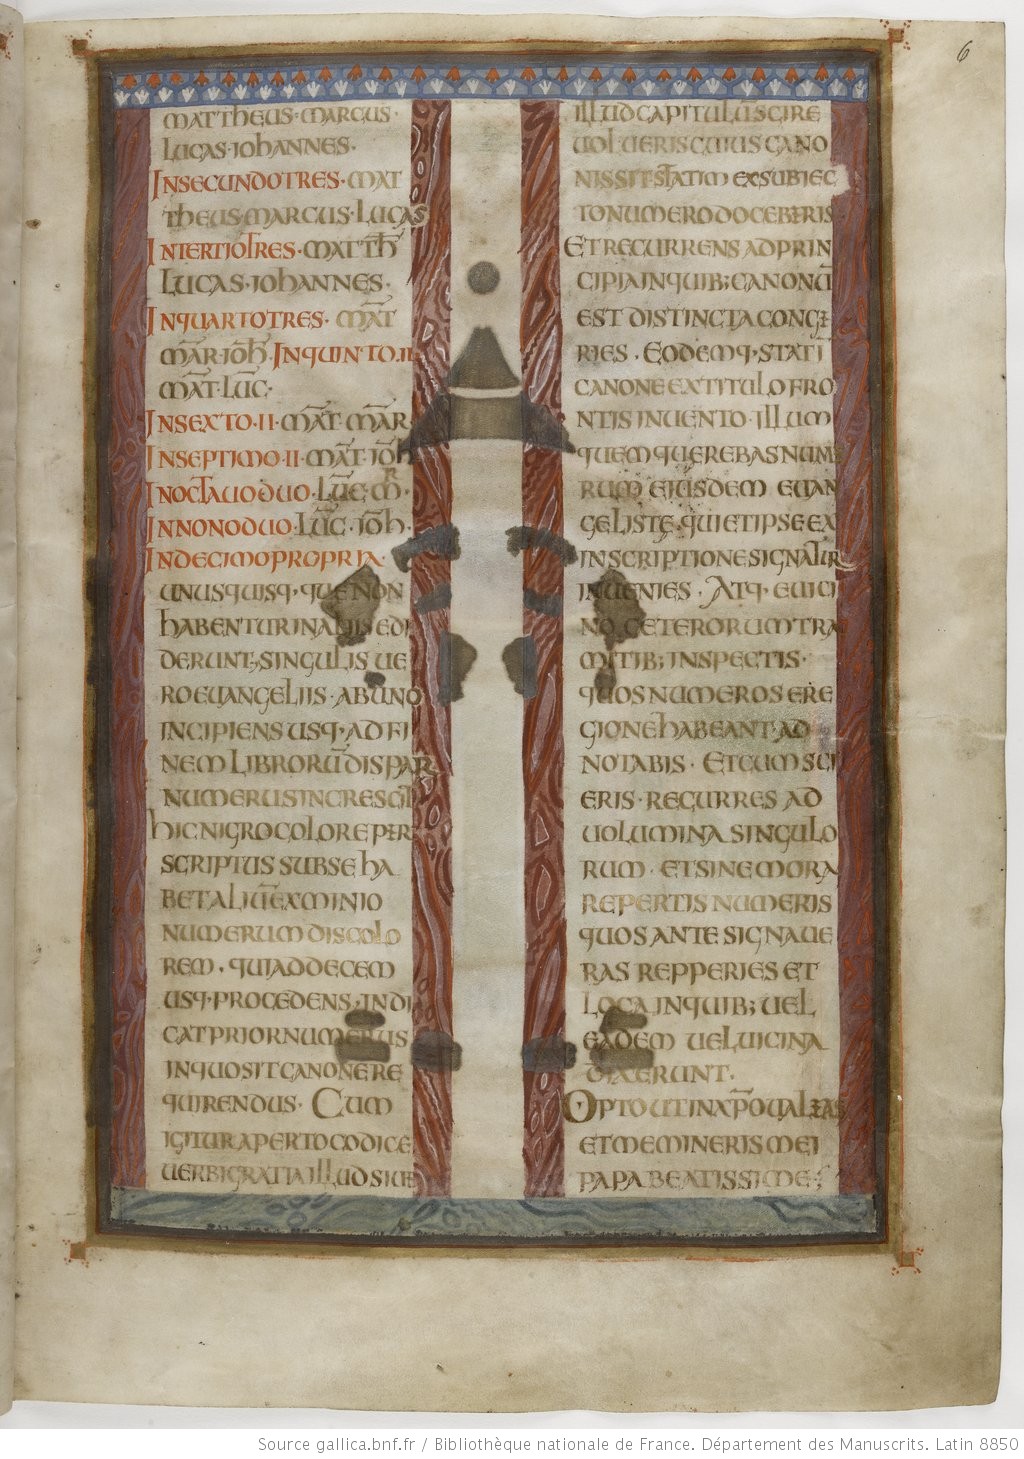 6
MATTHEUS·MARCUS·
LUCAS·IOHANNES·
INSECUNDOTRES·MAT
THEUS·MARCUS·LUCAS
INTERTIOTRES·MATTH̄
LUCAS·IOHANNES·
INQUARTOTRES·MAT̄
MAR̄·IOH̄·INQUINTO·II
MAT̄·LUC̄·
INSEXTO·II·MAT̄·MAR̄
INSEPTIMO·II·MAT̄·IOH̄
INOCTAUODUO·LUC̄·M̄R·
INNONODUO·LUC̄·IOH̄·
INDECIMOPROPRIA
UNUSQUISQ·QUENON
HABENTURINALIISEDI
DERUNT;SINGULISUE
ROEUANGELIIS·ABUNO
INCIPIENSUSQ·ADFI
NEMLIBRORŪDISPAR
NUMERUSINCRESCIT
HICNIGROCOLOREPER
SCRIPTUSSUBSEHA
BETALIŪEXMINIO
NUMERUMDISCOLO
REM·QUIADDECEM
USQ·PROCEDENS·INDI
CATPRIORNUMERUS
INQUOSITCANONERE
QUIRENDUS·CUM
IGITURAPERTOCODICE
UERBIGRATIAILLUDSIUE
ILLUDCAPITULŪSCIRE
UOLUERISCUIUSCANO
NISSITSTATIMEXSUBIEC
TONUMERODOCEBERIS
ETRECURRENSADPRIN
CIPIAINQUIB;CANONŪ
ESTDISTINCTACONGE
RIES·EODEMQ·STATĪ
CANONEEXTITULOFRO
NTISINUENTO·ILLUM
QUEMQUEREBASNUME
RUM EIUSDEM EUAN
GELISTE·QUIETIPSEEX
INSCRIPTIONESIGNATUR
INUENIES·ATQ·EUICI
NO·CETERORUMTRA
MITIB;INSPECTIS·
QUOSNUMEROSERE
GIONEHABEANT·AD
NOTABIS·ETCUMSCI
ERIS·RECURRES AD
UOLUMINASINGULO
RUM·ETSINEMORA
REPERTISNUMERIS
QUOSANTESIGNAUE
RAS REPPERIESET
LOCAINQUIB;UEL
EADEM UELUICINA
DIXERUNT·
OPTOUTINXP̄OUALEAS
ETMEMINERISMEI
PAPABEATISSIME·;
Source gallica.bnf.fr / Bibliothèque nationale de France. Département des Manuscrits. Latin 8850